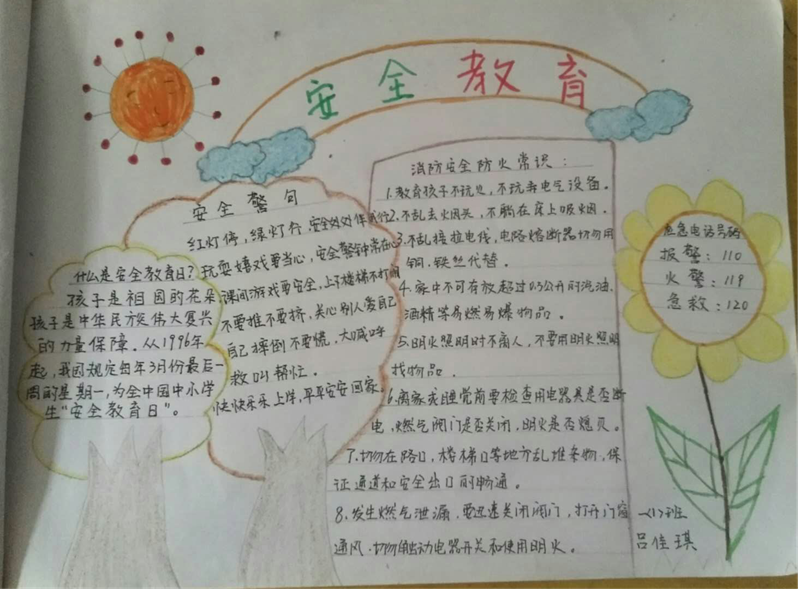 安全教育
什么是安全教育日?
孩子是祖国的花朵
孩子是中华民族伟大复兴
的力量保障。从1996年
起,我国规定每年3月份最后一
周的星期一,为全中国中小学
生“安全教育日”。
安全警句
红灯停,绿灯行,安全时时伴我行
玩耍嬉戏要当心,安全警钟常在心
课间游戏要安全,上下楼梯不打闹
不要推不要挤,关心别人爱自己
自己摔倒不要慌,大喊呼
救叫帮忙。
快快乐乐上学,平平安安回家。
消防安全防火常识:
1.教育孩子不玩火,不玩弄电气设备。
2.不乱丢火烟头,不躺在床上吸烟。
3.不乱接拉电线,电路熔断器切勿用
铜、铁丝代替。
4.家中不可存放超过0.5公升的汽油、
酒精等易燃易爆物品。
5.明火照明时不离人,不要用明火照明
找物品。
6.离家或睡觉前要检查用电器具是否断
电,燃气阀门是否关闭,明火是否熄灭。
7.切勿在路口、楼梯口等地方乱堆杂物,保
证通道和安全出口的畅通。
8.发生燃气泄漏,要迅速关闭阀门,打开门窗
通风,切勿触动电器开关和使用明火。
应急电话号码
报警:110
火警:119
急救:120
一(1)班
吕佳琪